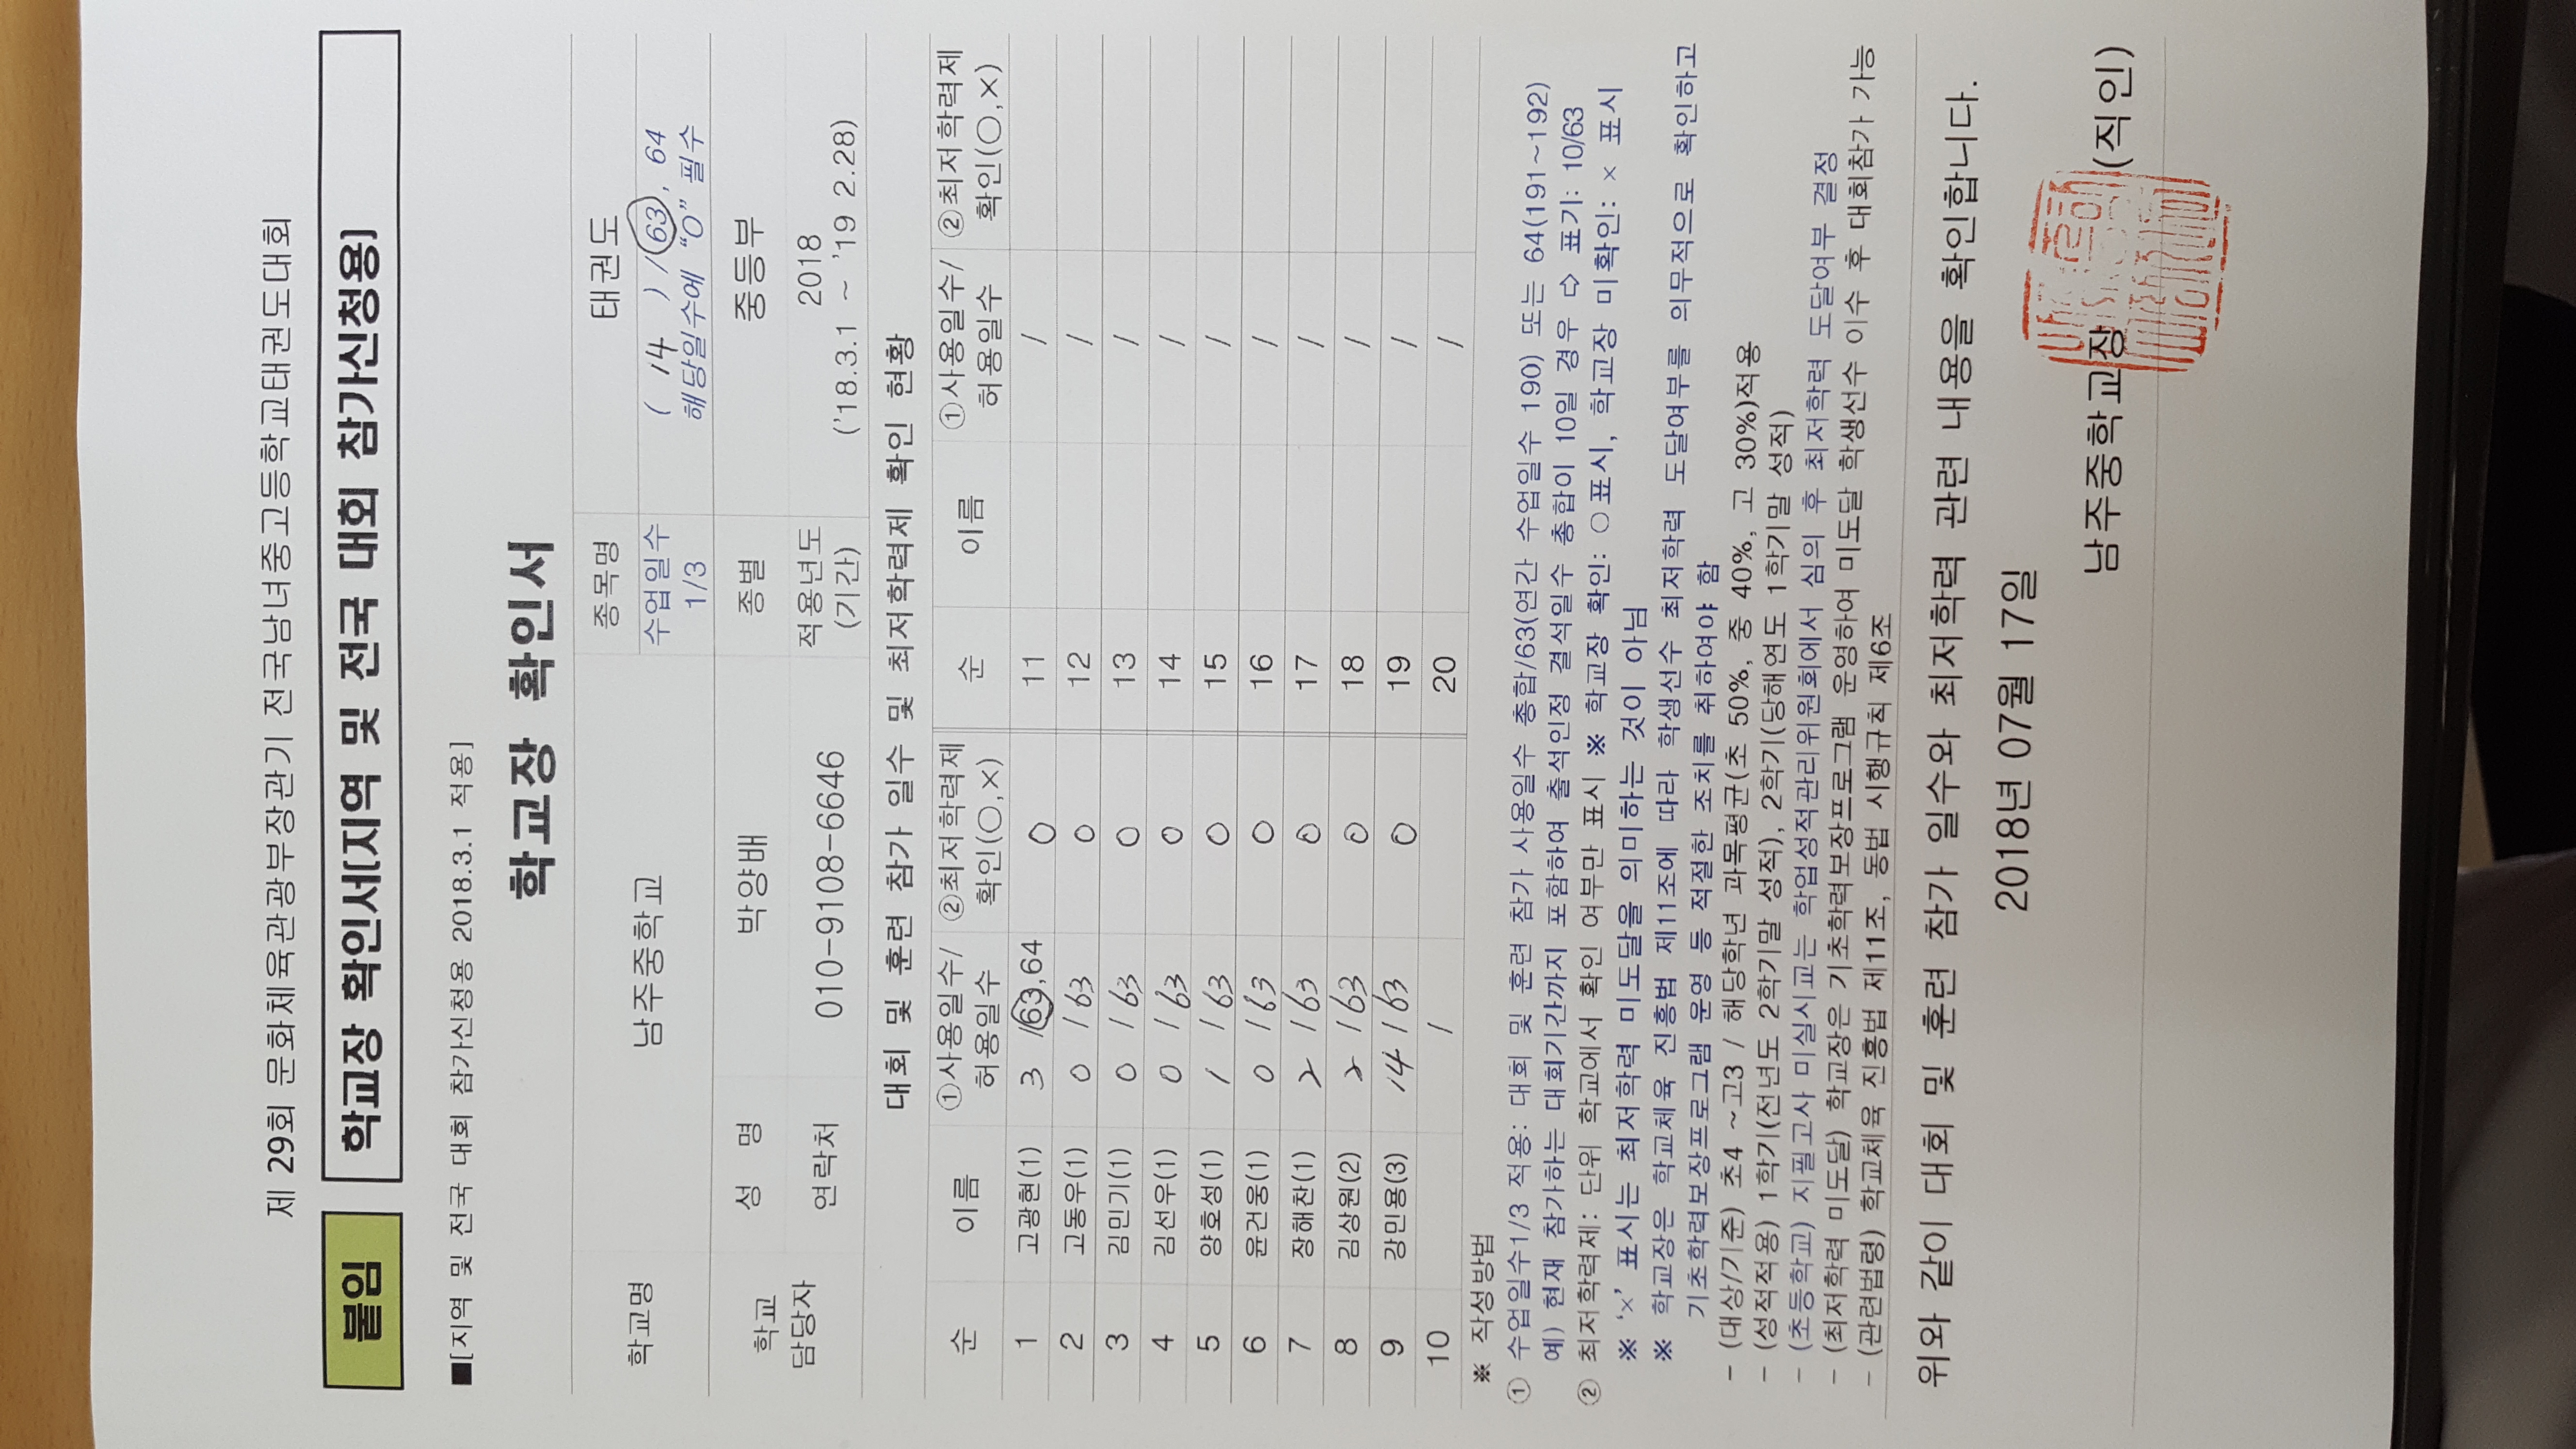 제 29회 문화체육관광부장관기 전국남녀중고등학교태권도대회
붙임 학교장 확인서[지역 및 전국 대회 참가신청용]
■[지역 및 전국 대회 참가신청용 2018.3.1 적용]
학교장 확인서
학교명 남주중학교 종목명 태권도
수업일수 1/3 ( 14 ) / 63, 64
해당일수에 "O" 필수
학교 담당자 성 명 박양배 종별 중등부
연락처 010-9108-6646 적용년도 (기간) 2018
('18.3.1 ~ '19 2.28)
대회 및 훈련 참가 일수 및 최저학력제 확인 현황
순 이름 ①사용일수/허용일수 ②최저학력제 확인(○,×) 순 이름 ①사용일수/허용일수 ②최저학력제 확인(○,×)
1 고광현(1) 3 /63,64 O 11 /
2 고동우(1) 0 / 63 O 12 /
3 김민기(1) 0 / 63 O 13 /
4 김선우(1) 0 / 63 O 14 /
5 양호성(1) 1 / 63 O 15 /
6 윤건웅(1) 0 / 63 O 16 /
7 장해찬(1) 2 / 63 O 17 /
8 김상원(2) 2 / 63 O 18 /
9 강민용(3) 14 / 63 O 19 /
10 / 20 /
※ 작성방법
① 수업일수1/3 적용: 대회 및 훈련 참가 사용일수 총합/63(연간 수업일수 190) 또는 64(191~192)
예) 현재 참가하는 대회기간까지 포함하여 출석인정 결석일수 총합이 10일 경우 ⇨ 표기: 10/63
② 최저학력제: 단위 학교에서 확인 여부만 표시 ※ 학교장 확인: ○표시, 학교장 미확인: × 표시
※ '×' 표시는 최저학력 미도달을 의미하는 것이 아님
※ 학교장은 학교체육 진흥법 제11조에 따라 학생선수 최저학력 도달여부를 의무적으로 확인하고
기초학력보장프로그램 운영 등 적절한 조치를 취하여야 함
- (대상/기준) 초4 ~고3 / 해당학년 과목평균(초 50%, 중 40%, 고 30%)적용
- (성적적용) 1학기(전년도 2학기말 성적), 2학기(당해연도 1학기말 성적)
- (초등학교) 지필고사 미실시교는 학업성적관리위원회에서 심의 후 최저학력 도달여부 결정
- (최저학력 미도달) 학교장은 기초학력보장프로그램 운영하여 미도달 학생선수 이수 후 대회참가 가능
- (관련법령) 학교체육 진흥법 제11조, 동법 시행규칙 제6조
위와 같이 대회 및 훈련 참가 일수와 최저학력 관련 내용을 확인합니다.
2018년 07월 17일
남주중학교장 (직인)